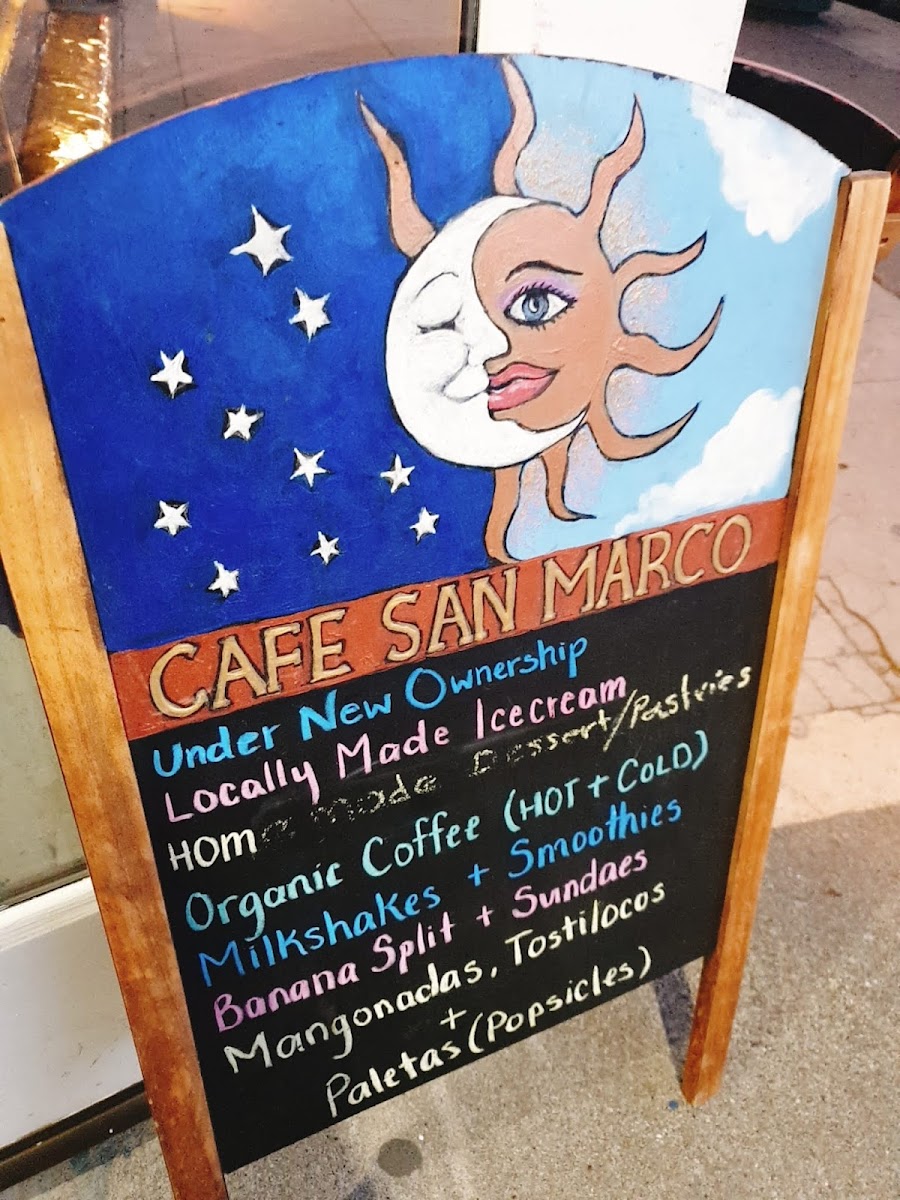 CAFE SAN MARCO
Under New Ownership
Locally Made Icecream
HOMemade Dessert/Pastries
Organic Coffee (HOT + COLD)
Milkshakes + Smoothies
Banana Split + Sundaes
Mangonadas, Tostilocos
+
Paletas (Popsicles)